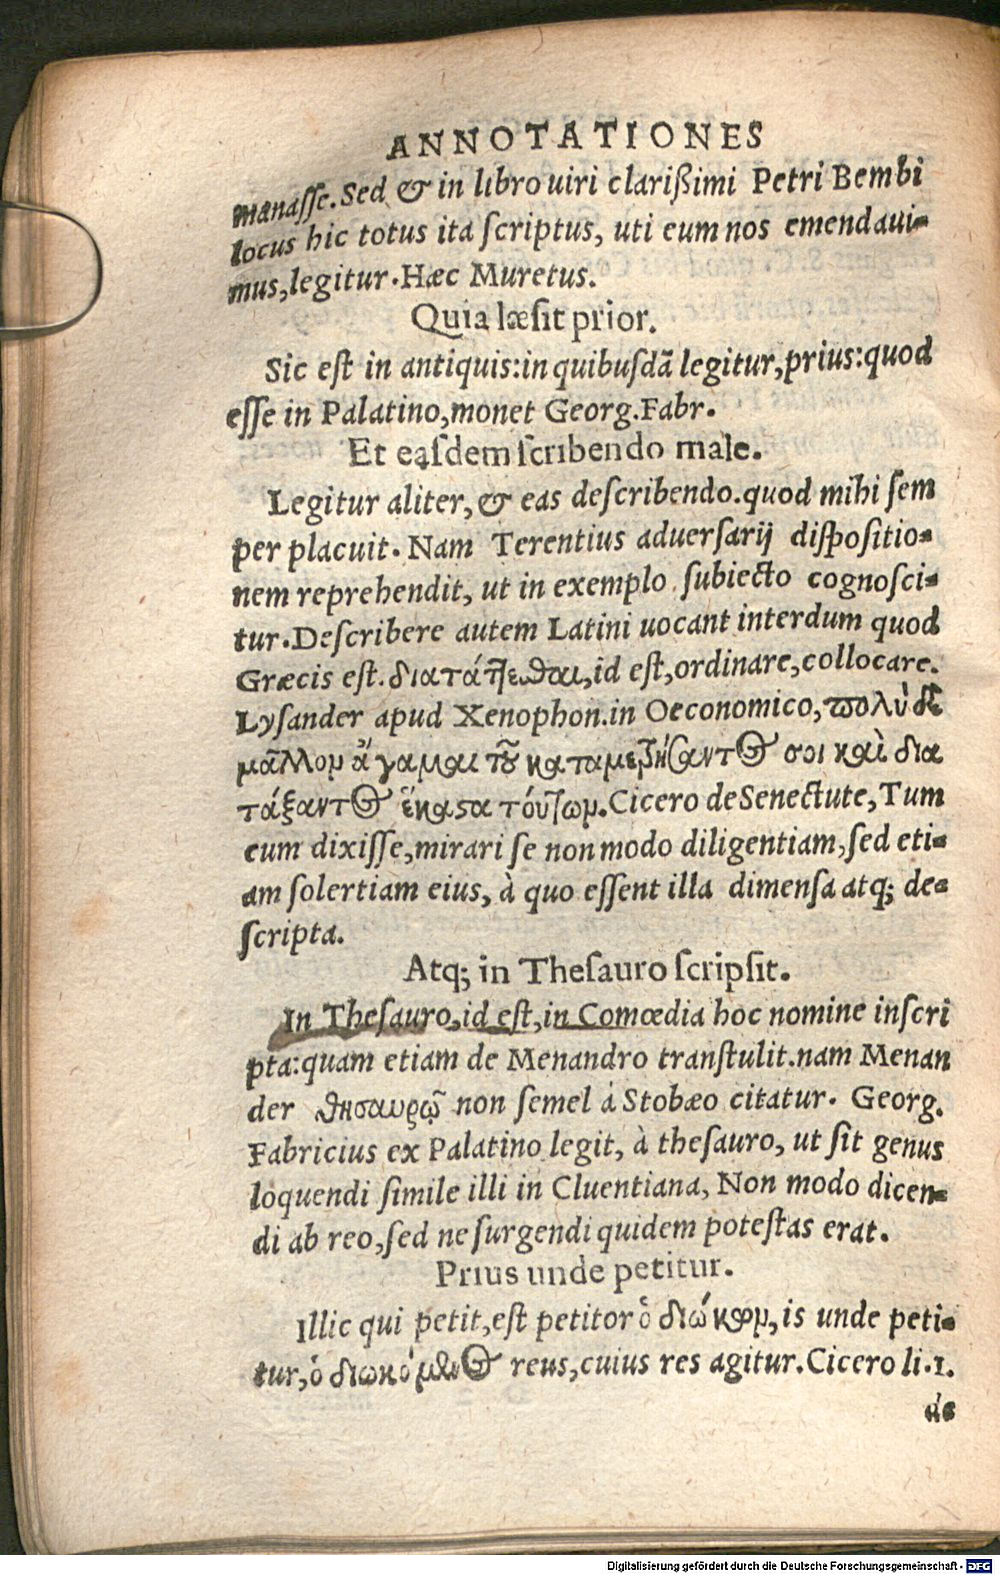 ANNOTATIONES
manasse. Sed & in libro uiri clarißimi Petri Bembi
locus hic totus ita scriptus, uti eum nos emendaui-
mus, legitur. Hæc Muretus.
Quia læsit prior.
Sic est in antiquis: in quibusdã legitur, prius: quod
esse in Palatino, monet Georg. Fabr.
Et easdem scribendo male.
Legitur aliter, & eas describendo. quod mihi sem
per placuit. Nam Terentius aduersarij dispositio-
nem reprehendit, ut in exemplo subiecto cognosci-
tur. Describere autem Latini uocant interdum quod
Græcis est. διατάττεσθαι, id est, ordinare, collocare.
Lysander apud Xenophon. in Oeconomico, πολὺ δὲ
μᾶλλον ἄγαμαι τοῦ καταμετρήσαντος σοι καὶ δια
τάξαντος ἕκαστα τούτων. Cicero de Senectute, Tum
eum dixisse, mirari se non modo diligentiam, sed eti-
am solertiam eius, à quo essent illa dimensa atq; de-
scripta.
Atq; in Thesauro scripsit.
In Thesauro, id est, in Comœdia hoc nomine inscri
pta: quam etiam de Menandro transtulit. nam Menan
der θησαυρῷ non semel à Stobæo citatur. Georg.
Fabricius ex Palatino legit, à thesauro, ut sit genus
loquendi simile illi in Cluentiana, Non modo dicen-
di ab reo, sed ne surgendi quidem potestas erat.
Prius unde petitur.
Illic qui petit, est petitor ὁ διώκων, is unde peti-
tur, ὁ διωκόμενος reus, cuius res agitur. Cicero li. 1.
de
Digitalisierung gefördert durch die Deutsche Forschungsgemeinschaft - DFG